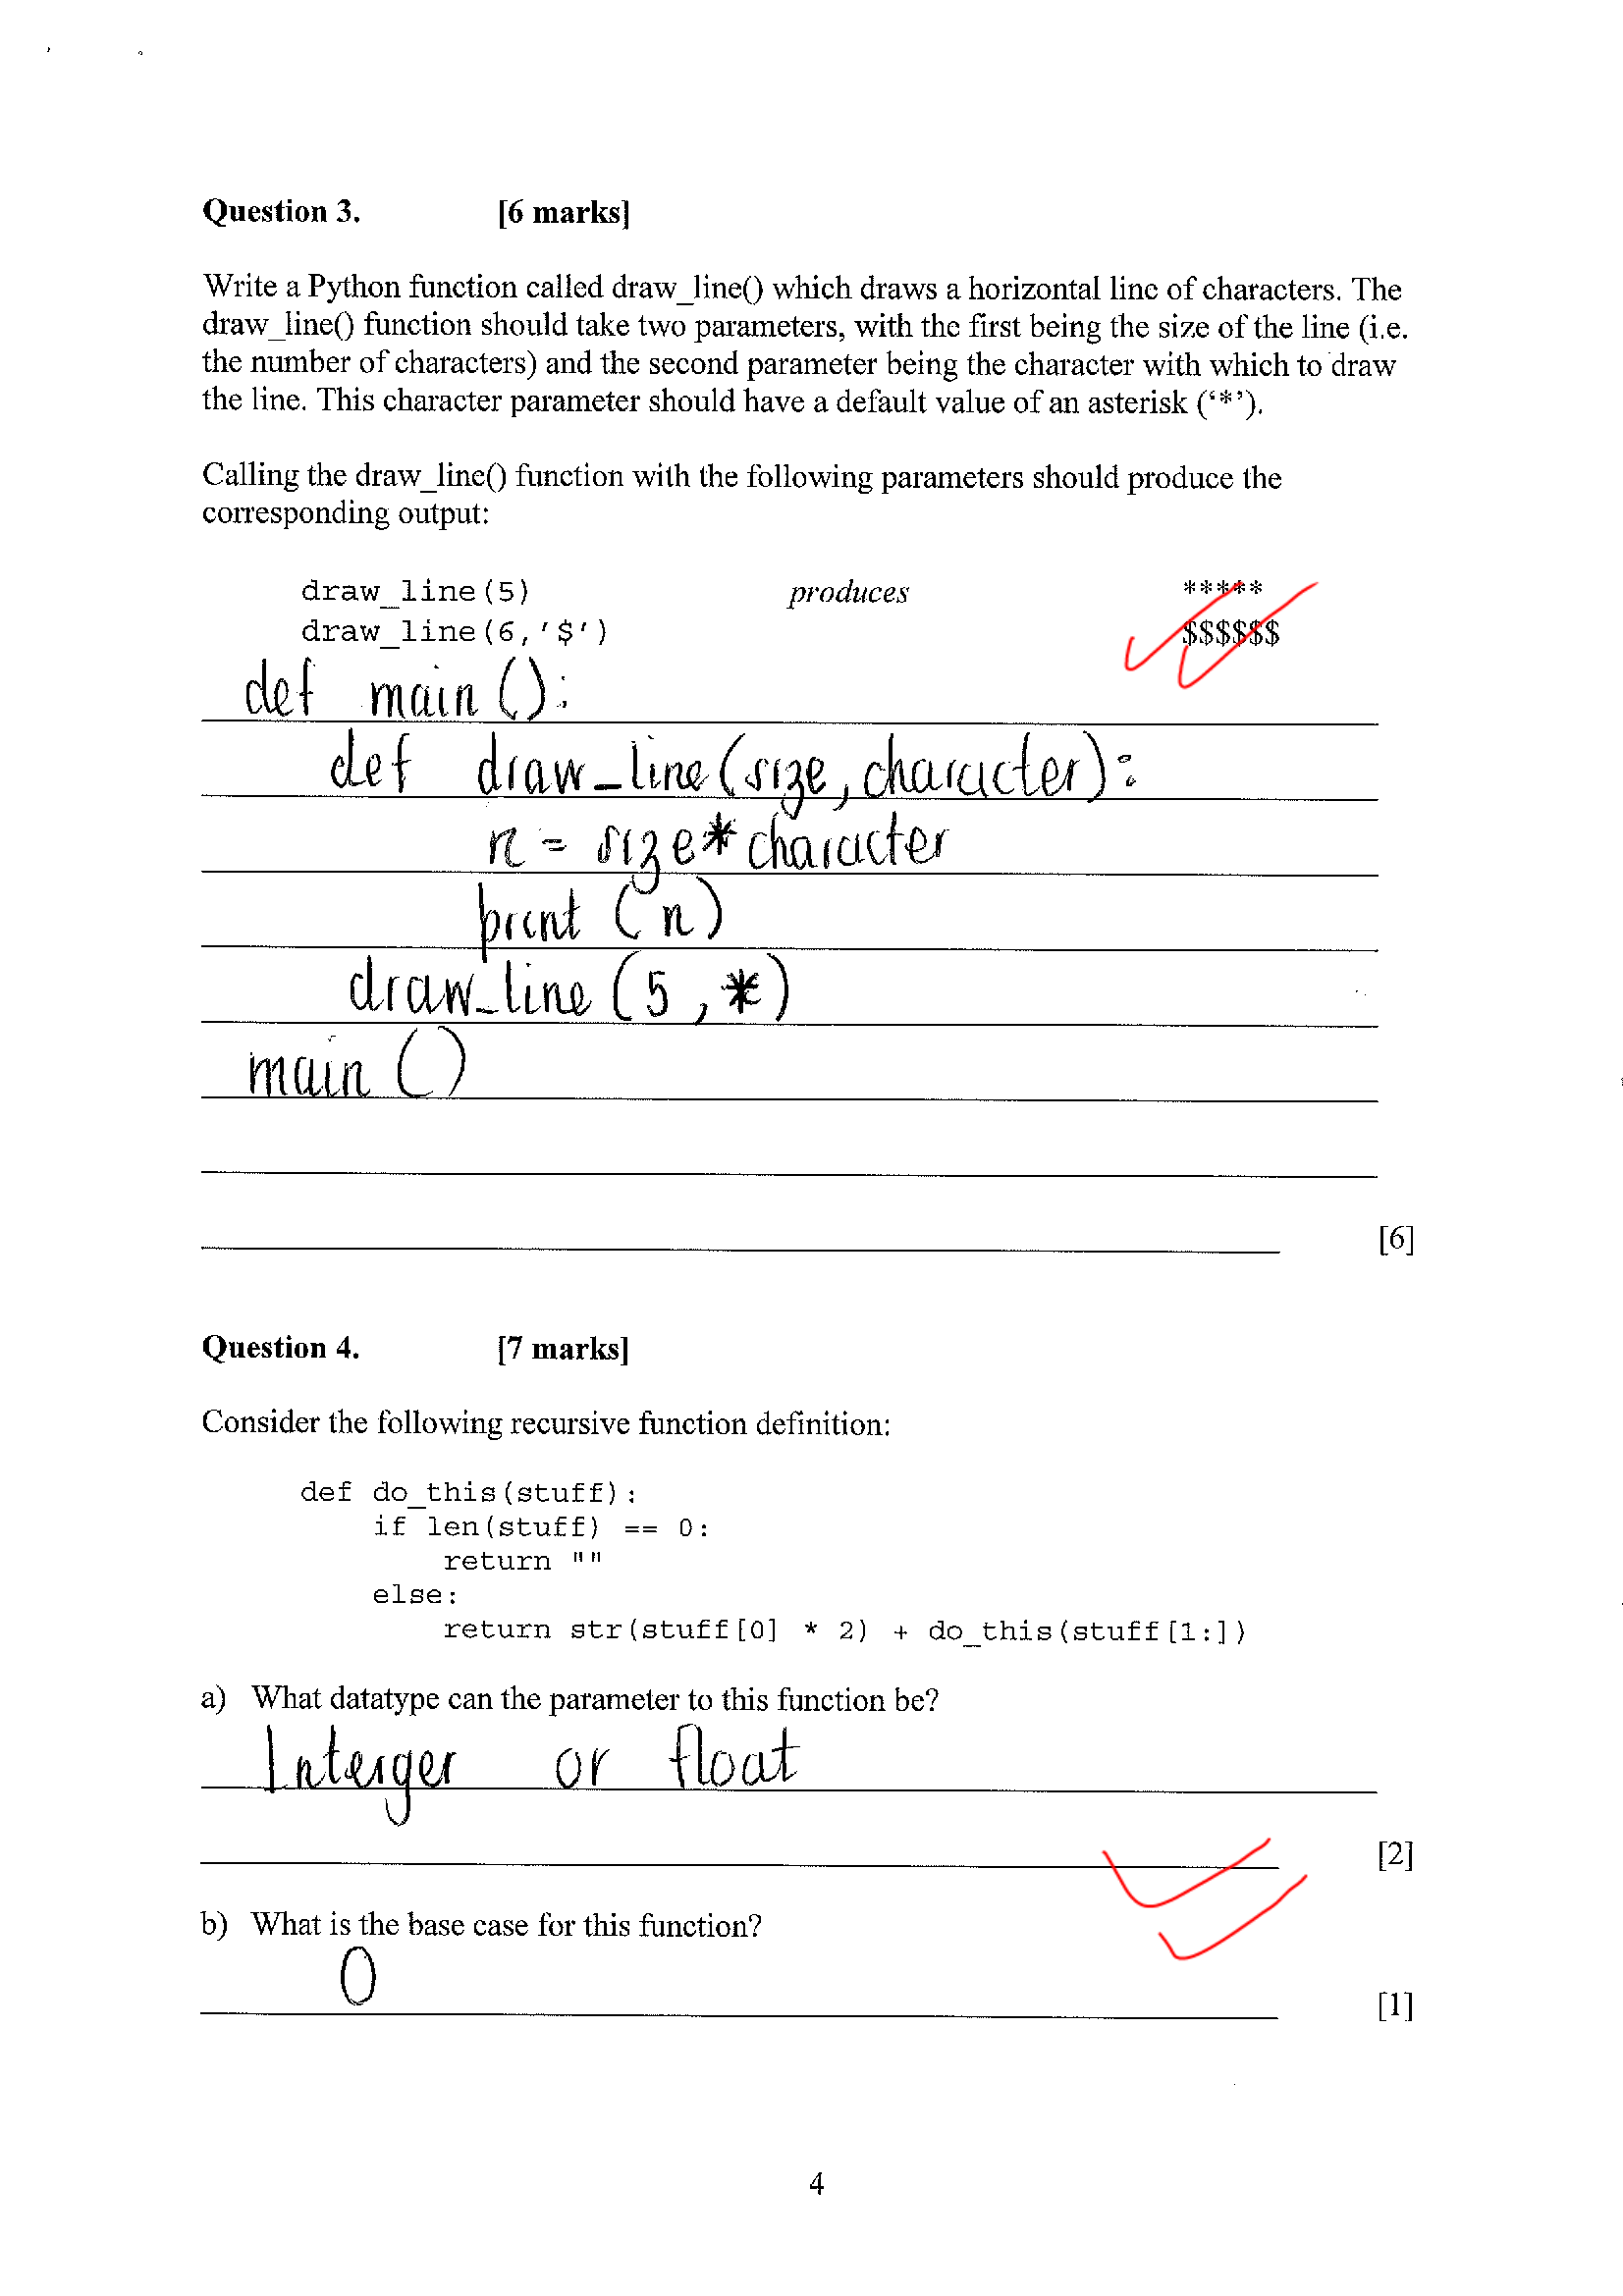 Question 3. [6 marks]
Write a Python function called draw_line() which draws a horizontal line of characters. The
draw_line() function should take two parameters, with the first being the size of the line (i.e.
the number of characters) and the second parameter being the character with which to draw
the line. This character parameter should have a default value of an asterisk (‘*’).
Calling the draw_line() function with the following parameters should produce the
corresponding output:
draw_line(5) produces *****
draw_line(6,'$') $$$$$$
def main():
def draw_line(size, character):
n = size * character
print (n)
draw_line (5, *)
main ()
[6]
Question 4. [7 marks]
Consider the following recursive function definition:
def do_this(stuff):
if len(stuff) == 0:
return ""
else:
return str(stuff[0] * 2) + do_this(stuff[1:])
a) What datatype can the parameter to this function be?
Interger or float
[2]
b) What is the base case for this function?
0
[1]
4